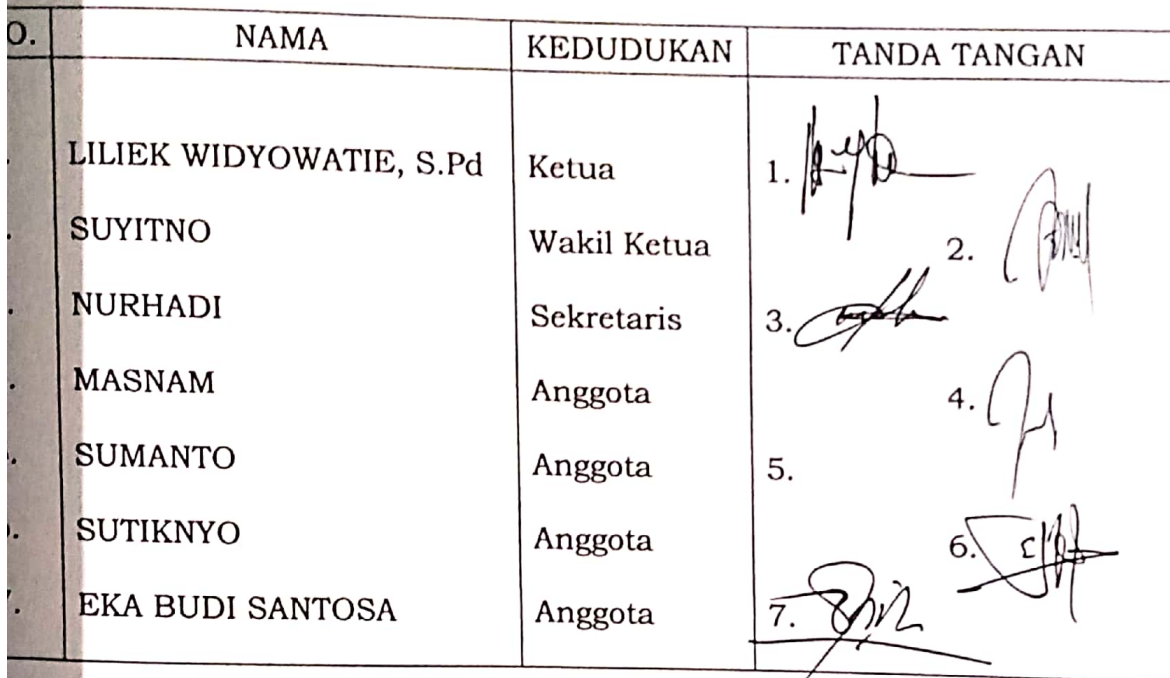 O. NAMA KEDUDUKAN TANDA TANGAN
. LILIEK WIDYOWATIE, S.Pd Ketua 1.
. SUYITNO Wakil Ketua 2.
. NURHADI Sekretaris 3.
. MASNAM Anggota 4.
. SUMANTO Anggota 5.
. SUTIKNYO Anggota 6.
. EKA BUDI SANTOSA Anggota 7.